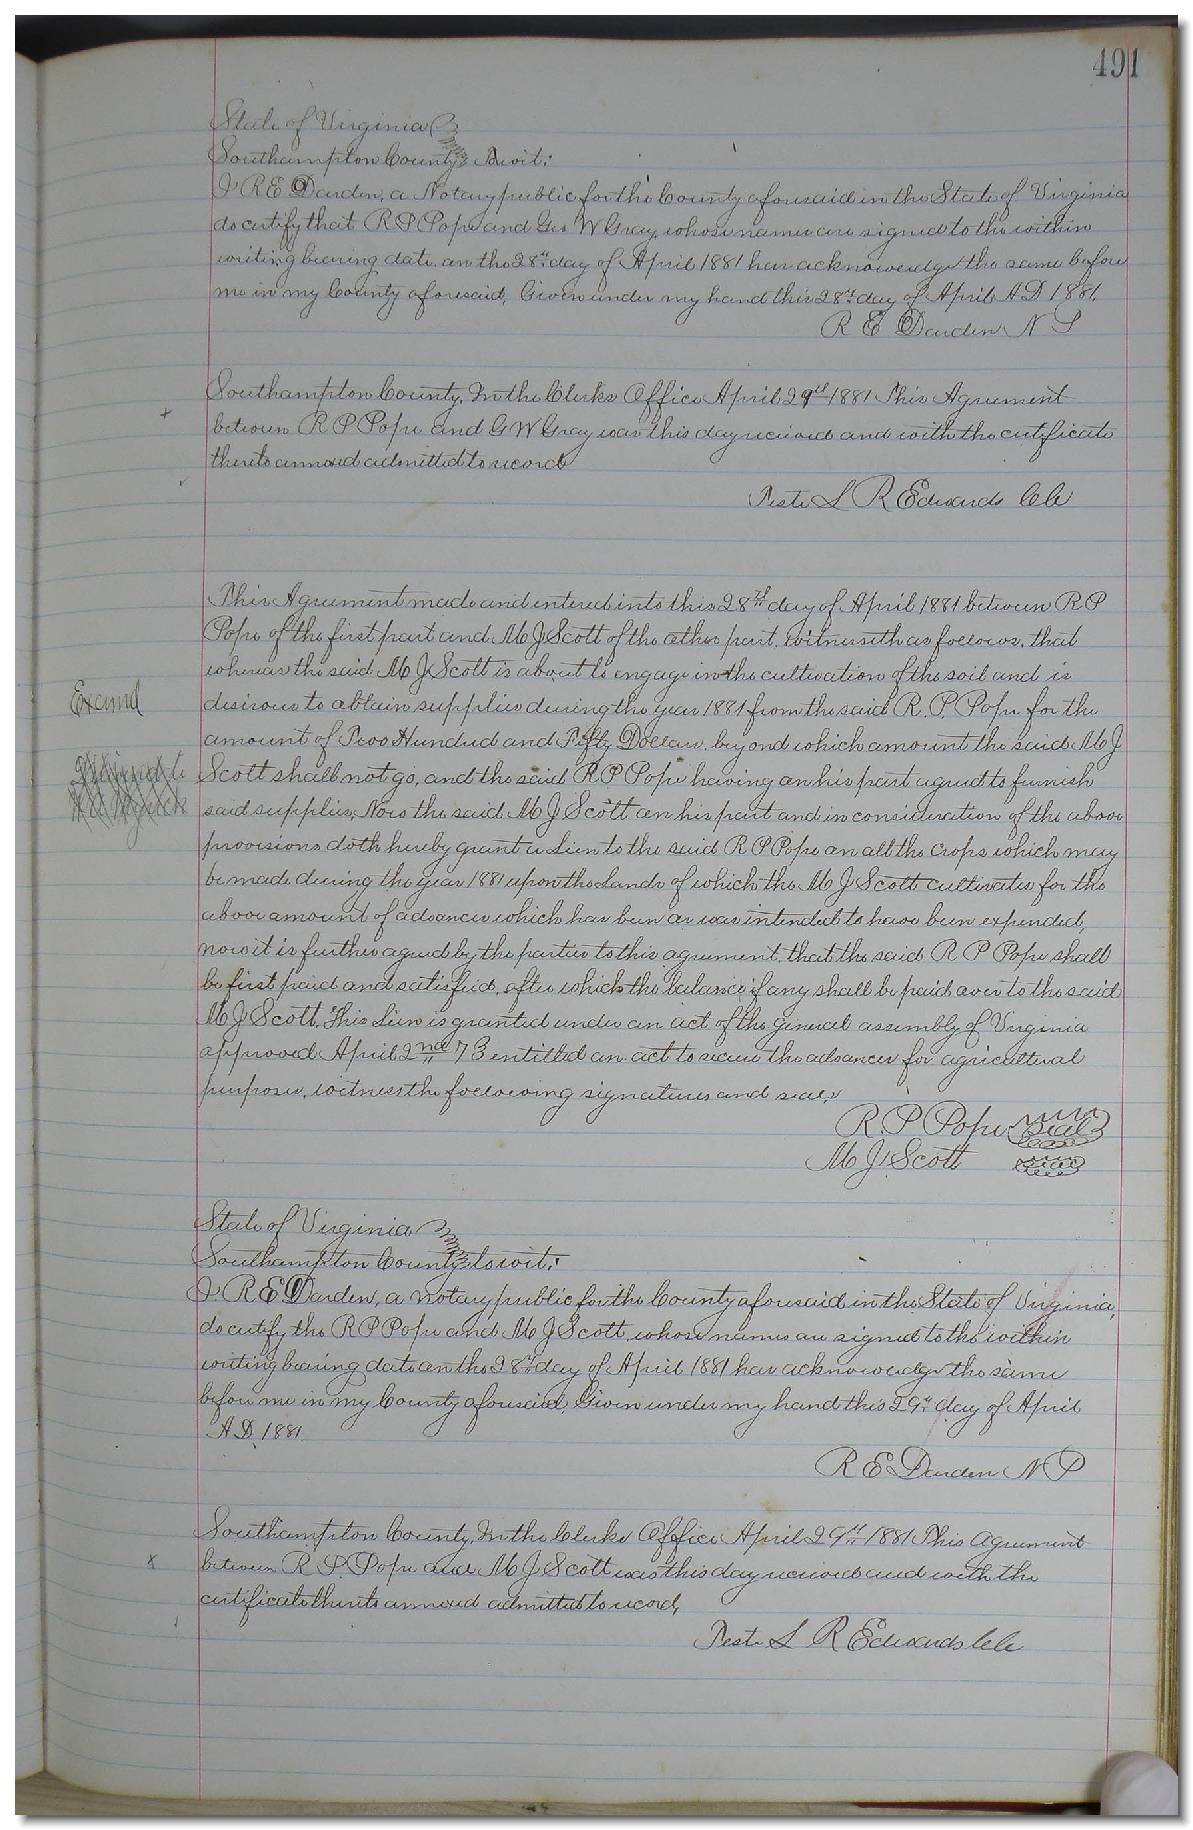 491
State of Virginia
Southampton County Towit:
I R E Darden, a Notary public for the County aforesaid in the State of Virginia
do certify that R P Pope and Geo W Gray whose names are signed to the within
writing bearing date on the 28th day of April 1881 hav acknowledge the same before
me in my County aforesaid, Given under my hand this 28th day of April A D 1881.
R E Darden N P
Southampton County, In the Clerks Office April 29th 1881 This Agreement
between R P Pope and G W Gray was this day received and with the certificate
thereto annexed admitted to record
Teste L R Edwards Clk
This Agreement made and entered into this 28th day of April 1881 between R P
Pope of the first part and M J Scott of the other part, witnesseth as follows, that
whereas the said M J Scott is about to engage in the cultivation of the soil and is
desirous to obtain supplies during the year 1881 from the said R. P. Pope for the
Examd
amount of Two Hundred and Fifty Dollars, beyond which amount the said M J
Scott shall not go, and the said R P Pope having on his part agreed to furnish
said supplies, Now the said M J Scott on his part and in consideration of the above
provisions doth hereby grant a Lien to the said R P Pope on all the crops which may
be made during the year 1881 upon the Lands of which the M J Scott cultivates for the
above amount of advances which has been or was intended to have been expended,
now it is further agreed by the parties to this agreement, that the said R P Pope shall
be first paid and satisfied, after which the balance if any shall be paid over to the said
M J Scott, This Lien is granted under an act of the general assembly of Virginia
approved April 2nd 73 entitled an act to secure the advances for agricultural
purposes, witness the following signatures and seals
R. P Pope Seal
M J Scott Seal
State of Virginia
Southampton County towit:
I R E Darden, a notary public for the County aforesaid in the State of Virginia,
do certify the R P Pope and M J Scott, whose names are signed to the within
writing bearing date on the 28th day of April 1881 has acknowledge the same
before me in my County aforesaid, Given under my hand this 29th day of April
A D. 1881
R E Darden N P
Southampton County, In the Clerks Office April 29th 1881 This agreement
between R P. Pope and M J Scott was this day received and with the
certificate thereto annexed admitted to record,
Teste L R Edwards Clk